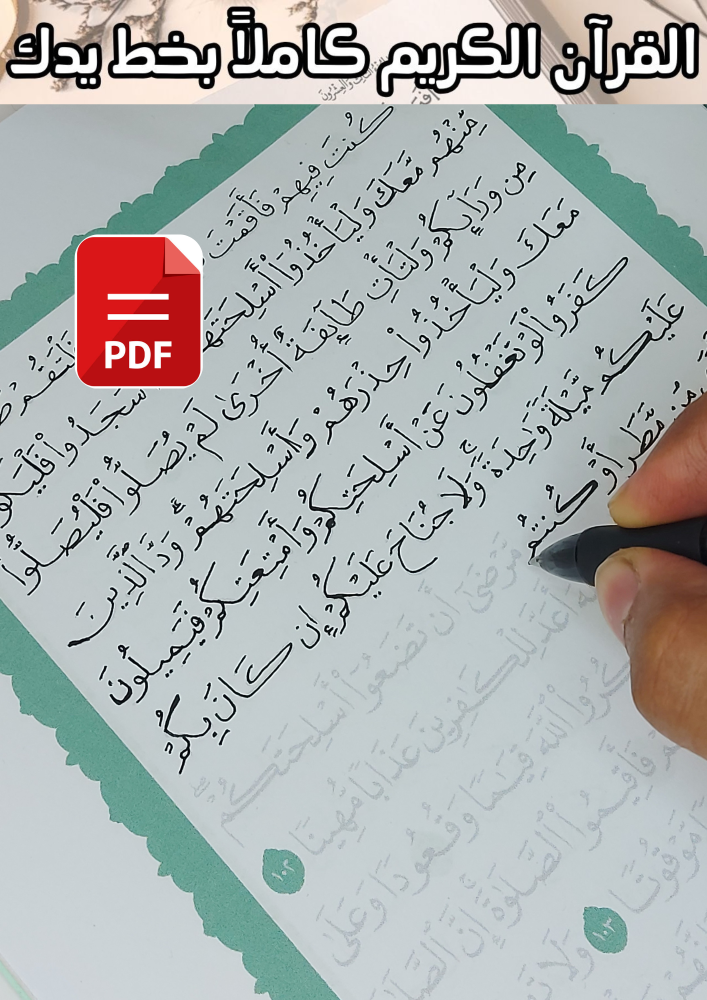 القرآن الكريم كاملاً بخط يدك
كُنتَ فِيهِمْ فَأَقَمْتَ فَلْتَقُمْ
PDF
مِّنْهُم مَّعَكَ وَلْيَأْخُذُوٓا۟ أَسْلِحَتَهُمْ سَجَدُوا۟
مِن وَرَآئِكُمْ وَلْتَأْتِ طَآئِفَةٌ أُخْرَىٰ لَمْ يُصَلُّوا۟ فَلْيُصَلُّوا۟
مَعَكَ وَلْيَأْخُذُوا۟ حِذْرَهُمْ وَأَسْلِحَتَهُمْ ۗ وَدَّ ٱلَّذِينَ
كَفَرُوا۟ لَوْ تَغْفُلُونَ عَنْ أَسْلِحَتِكُمْ وَأَمْتِعَتِكُمْ فَيَمِيلُونَ
عَلَيْكُم مَّيْلَةً وَٰحِدَةً ۚ وَلَا جُنَاحَ عَلَيْكُمْ إِن كَانَ بِكُمْ
مِّن مَّطَرٍ أَوْ كُنتُم مَّرْضَىٰ أَن تَضَعُوٓا۟ أَسْلِحَتَكُمْ ۖ
أَعَدَّ لِلْكَٰفِرِينَ عَذَابًا مُّهِينًا ١٠٢
ٱللَّهَ قِيَٰمًا وَقُعُودًا وَعَلَىٰ
فَأَقِيمُوا۟ ٱلصَّلَوٰةَ ۚ إِنَّ
مَّوْقُوتًا ١٠٣ وَلَا